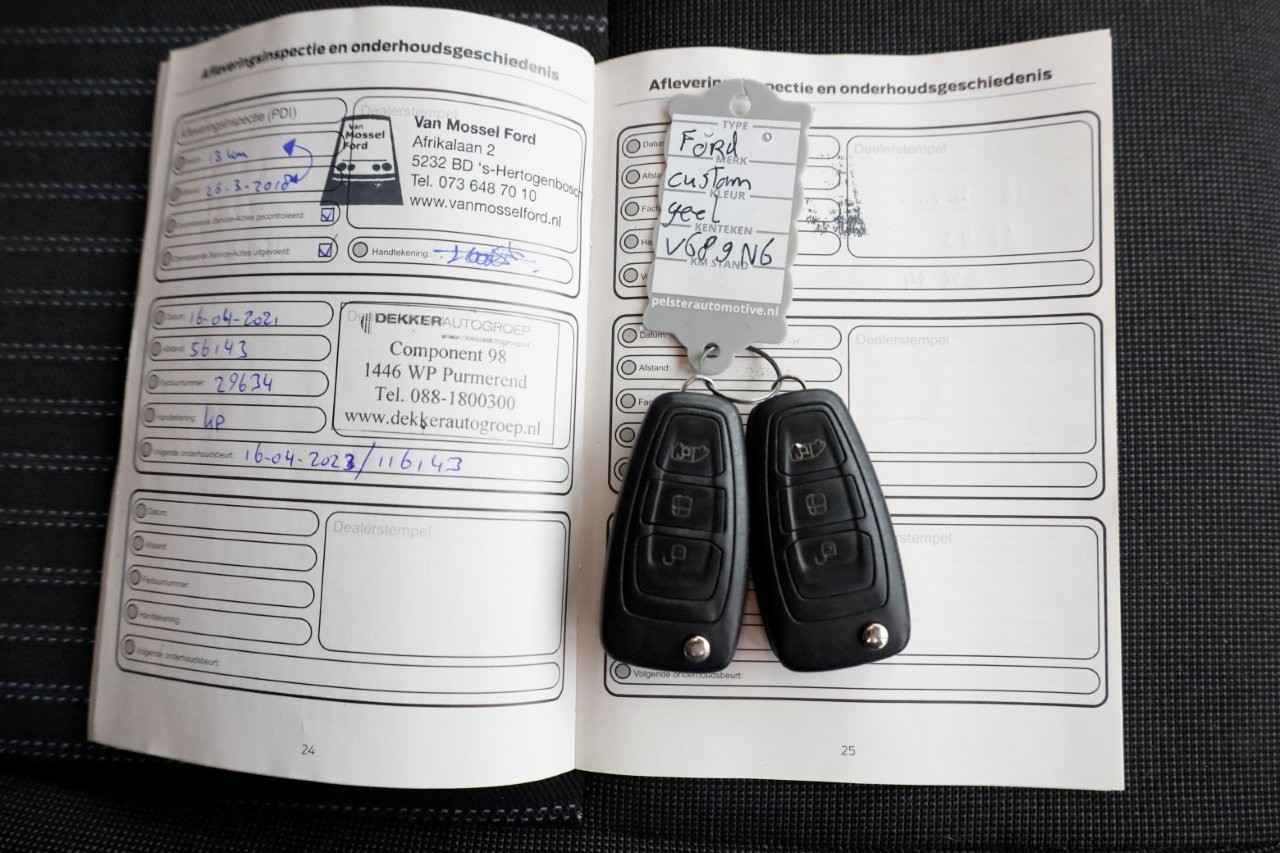 Afleveringsinspectie en onderhoudsgeschiedenis
Afleveringsinspectie (PDI)
13 km
26-3-2018
Dealerstempel
Van
Mossel
Ford
Van Mossel Ford
Afrikalaan 2
5232 BD 's-Hertogenbosch
Tel. 073 648 70 10
www.vanmosselford.nl
Handtekening:
Datum: 16-04-2021
Afstand: 56143
Factuurnummer: 29634
Handtekening:
Volgende onderhoudsbeurt: 16-04-2023/116143
DEKKERAUTOGROEP
Component 98
1446 WP Purmerend
Tel. 088-1800300
www.dekkerautogroep.nl
Datum:
Afstand:
Factuurnummer:
Handtekening:
Volgende onderhoudsbeurt:
Dealerstempel
24
Afleveringsinspectie en onderhoudsgeschiedenis
Dealerstempel
Datum:
Afstand:
Dealerstempel
Volgende onderhoudsbeurt:
25
TYPE
Ford
MERK
custom
KLEUR
geel
KENTEKEN
V689NG
KM STAND
pelsterautomotive.nl